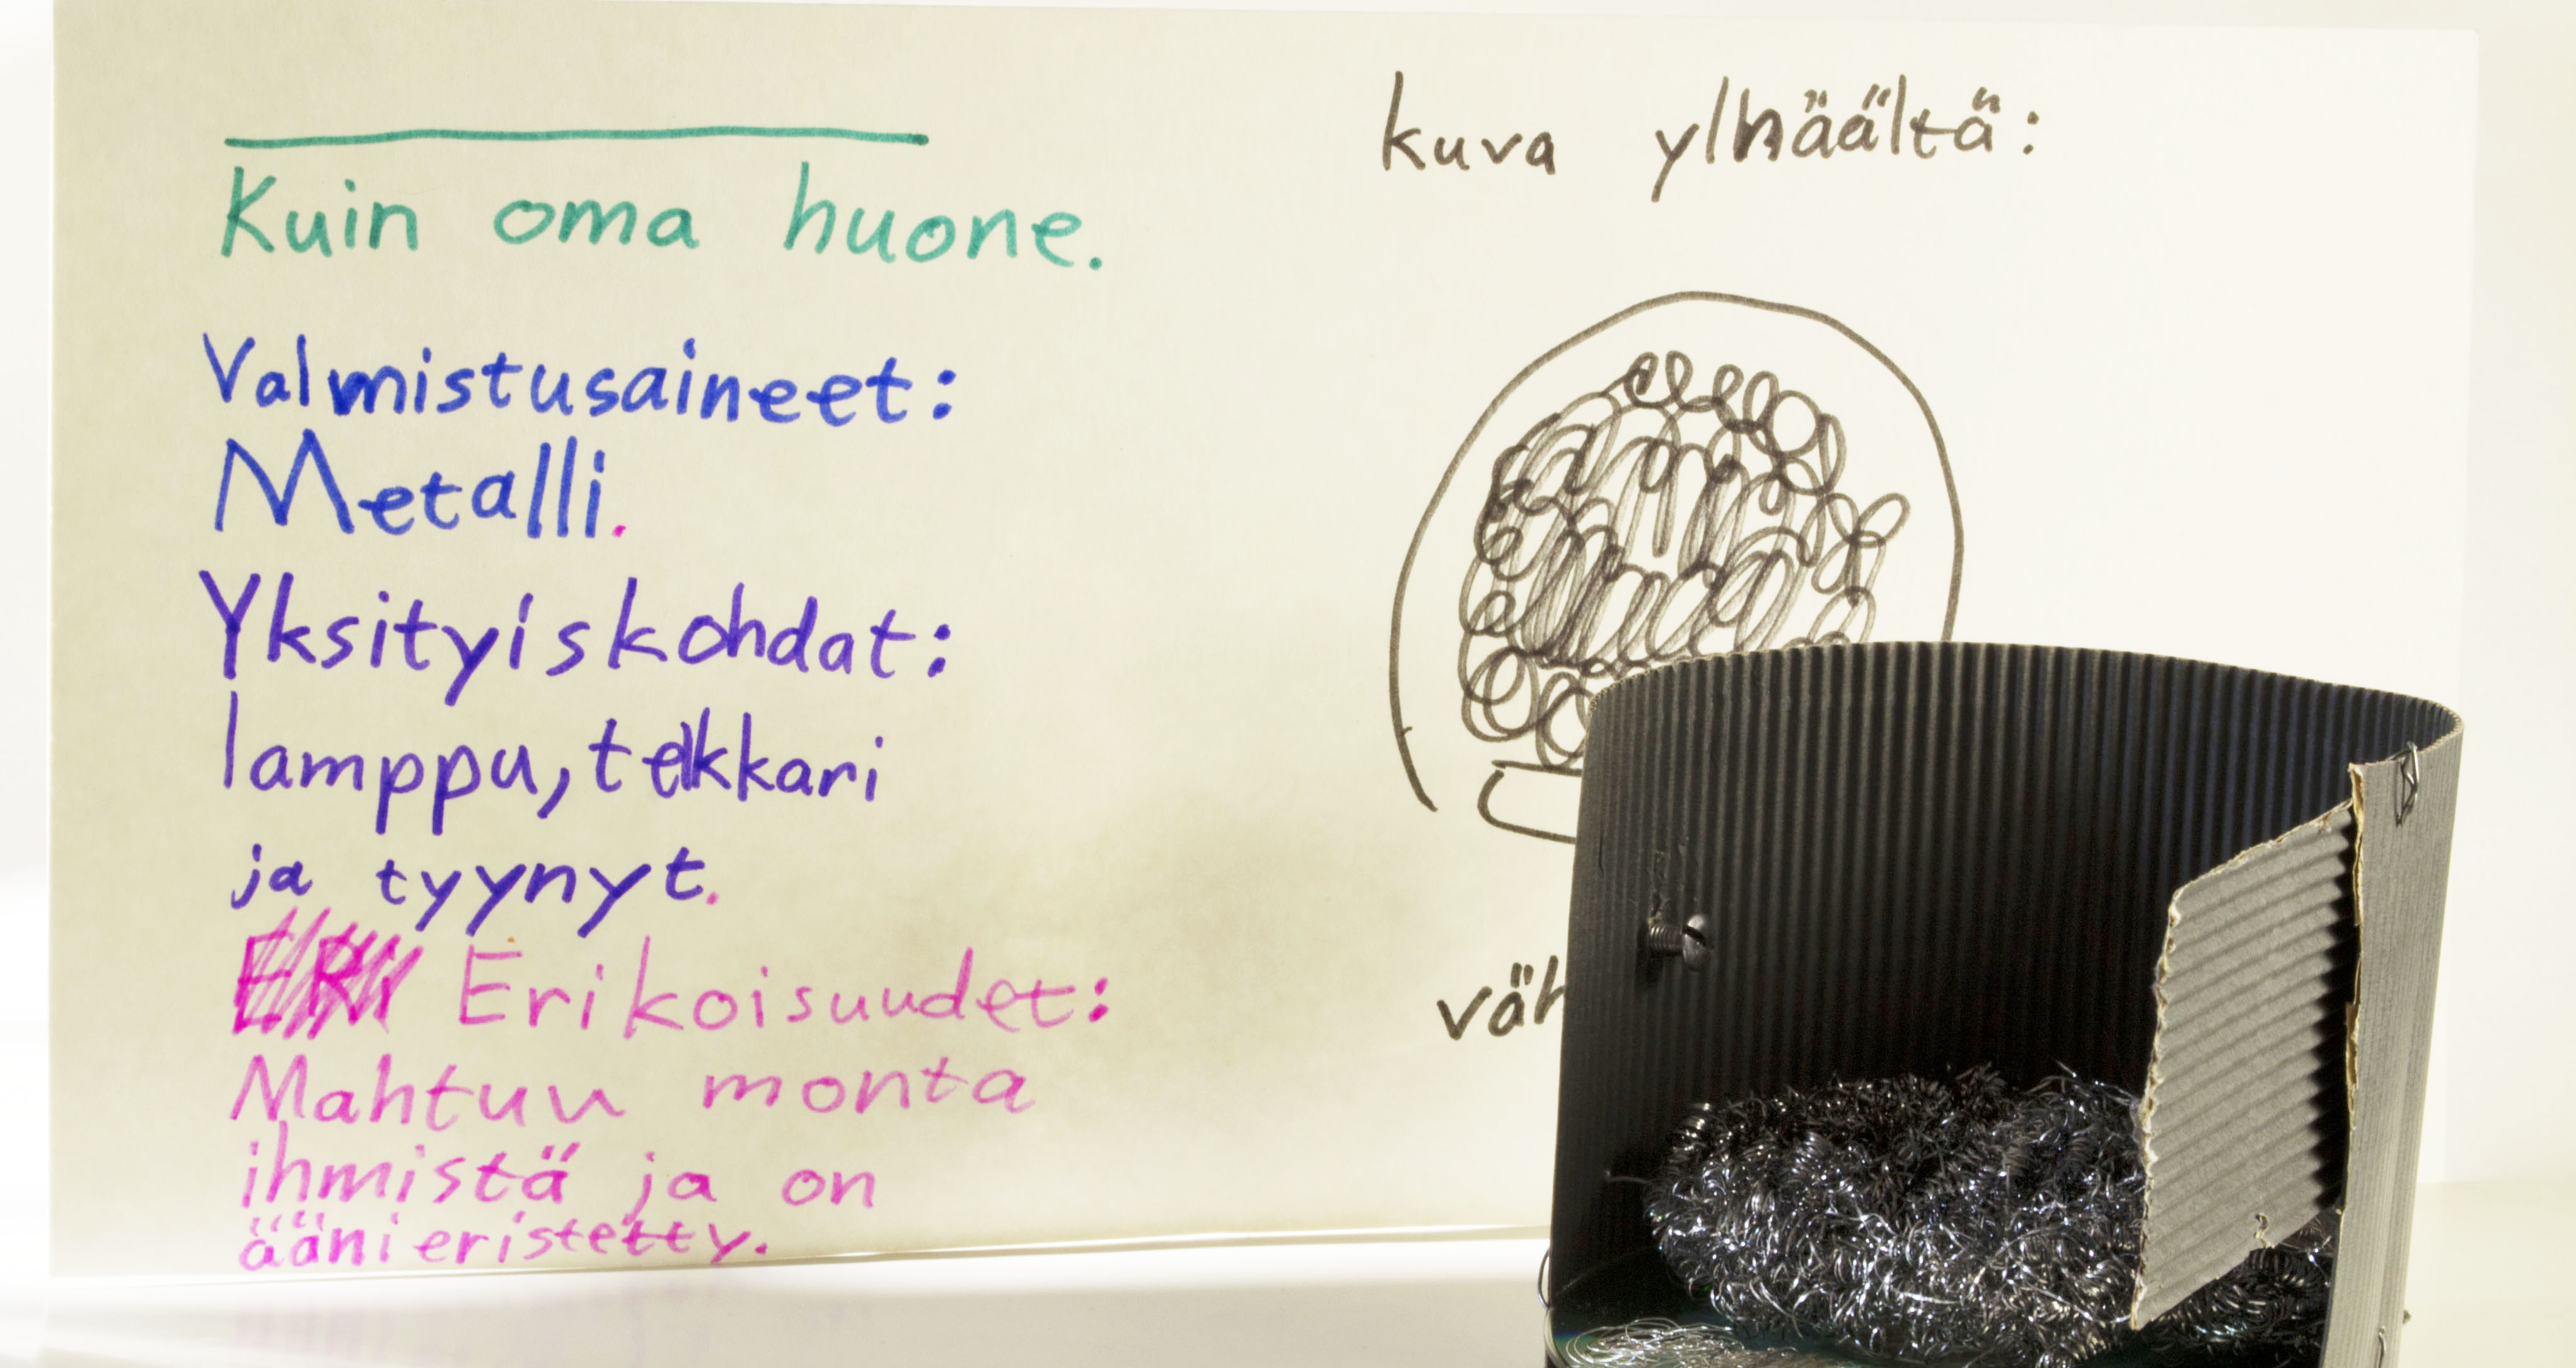 Kuin oma huone.
Valmistusaineet:
Metalli.
Yksityiskohdat:
lamppu, tekkari
ja tyynyt.
Erikoisuudet:
Mahtuu monta
ihmistä ja on
äänieristetty.
kuva ylhäältä: